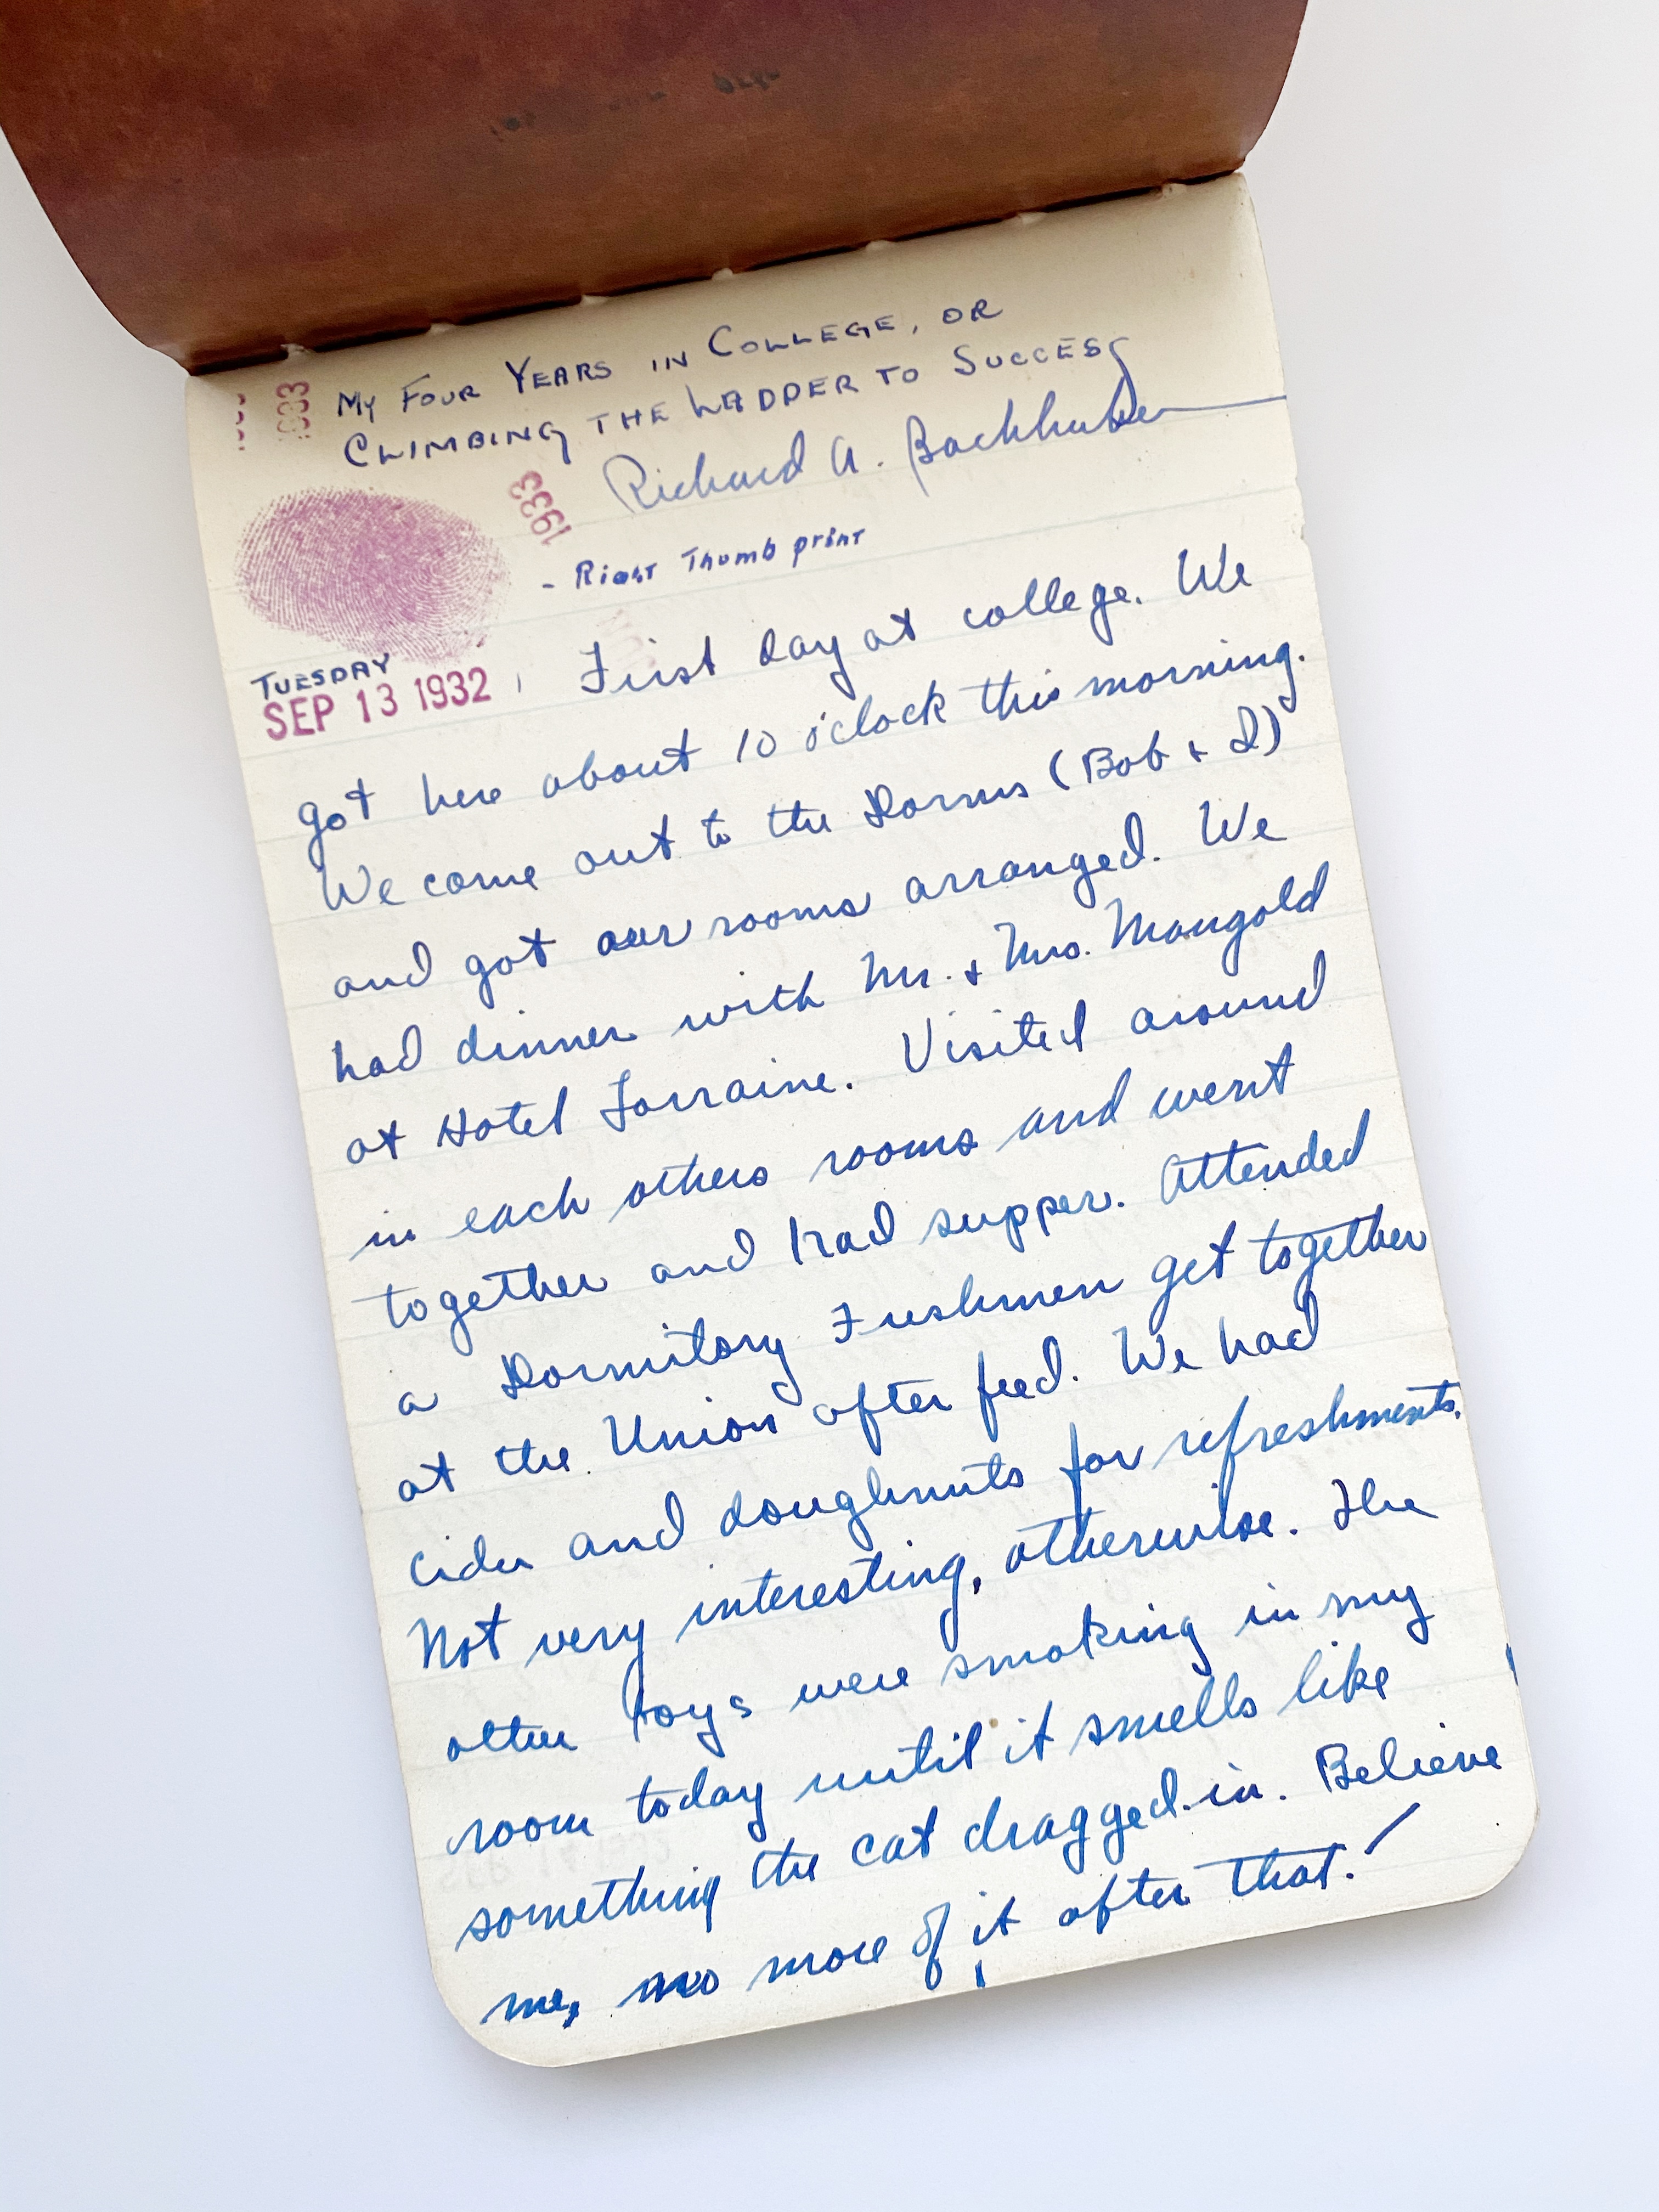 My Four Years in College, or
Climbing the Ladder to Success
Richard A. Backhuber
1933
1933
- Right Thumb print
Tuesday
SEP 13 1932, First day at college. We
got here about 10 o'clock this morning.
We come out to the Dorms (Bob + I)
and got our rooms arranged. We
had dinner with Mr. + Mrs. Mangold
at Hotel Lorraine. Visited around
in each others rooms and went
together and had supper. Attended
a Dormitory Freshmen get together
at the Union after feed. We had
cider and doughnuts for refreshments.
Not very interesting, otherwise. The
other boys were smoking in my
room today until it smells like
something the cat dragged in. Believe
me, no more of it after that!